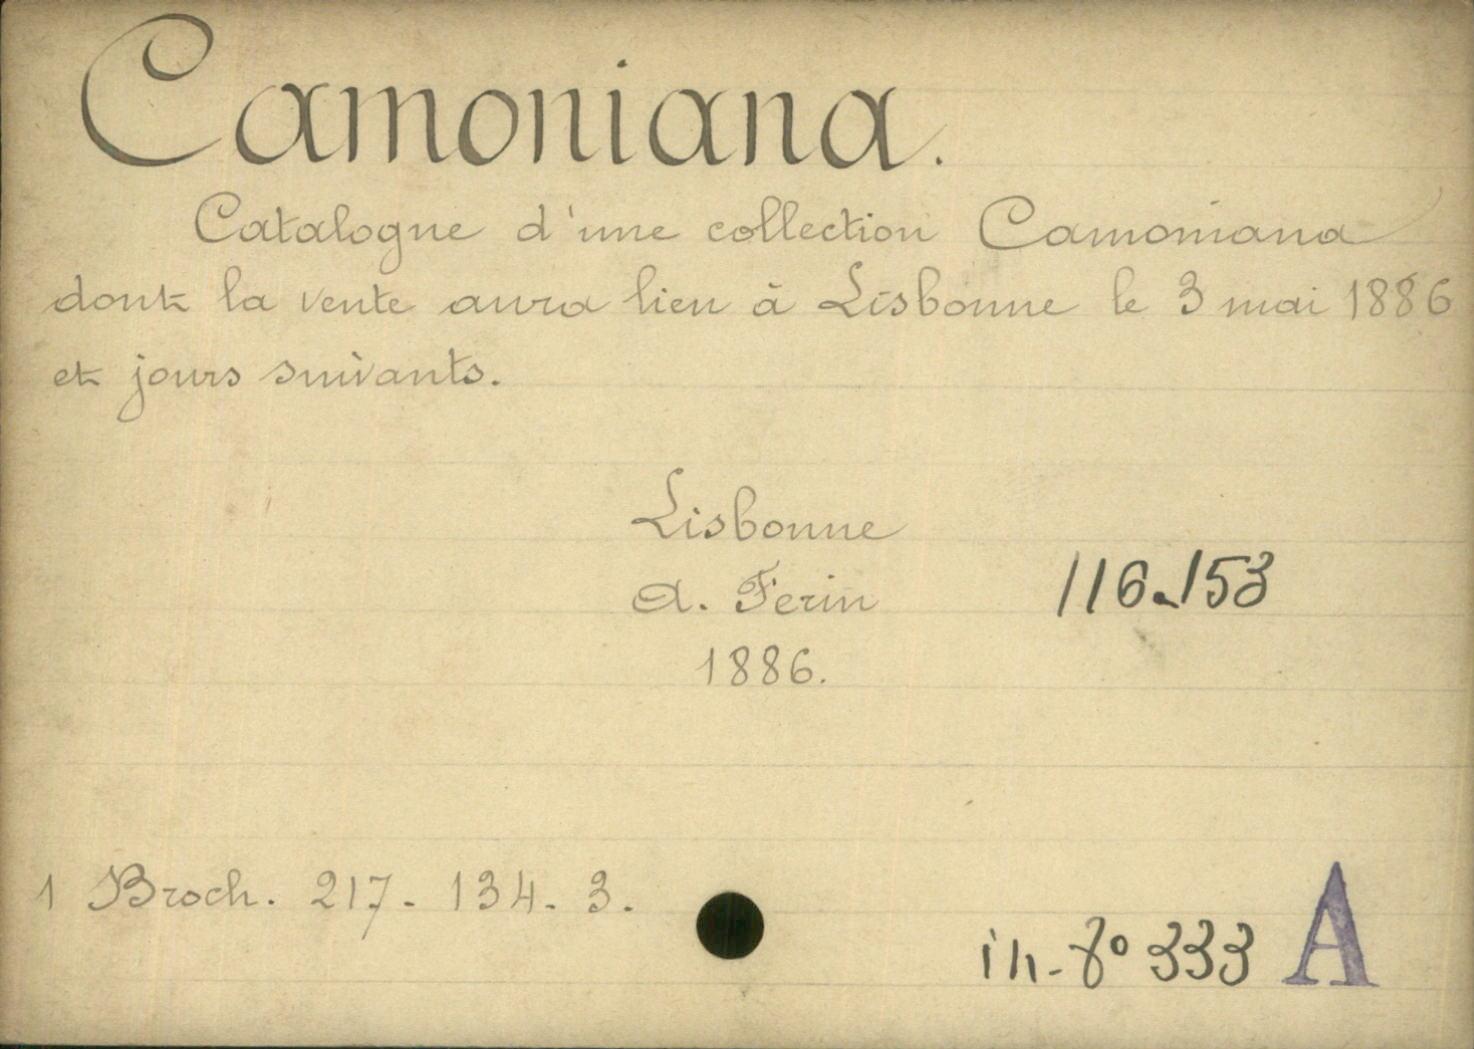 Camoniana.
Catalogue d'une collection Camoniana
dont la vente aura lieu à Lisbonne le 3 mai 1886
et jours suivants.
Lisbonne
A. Ferin
116.153
1886.
1 Broch. 217. 134. 3.
in-8º 333 A